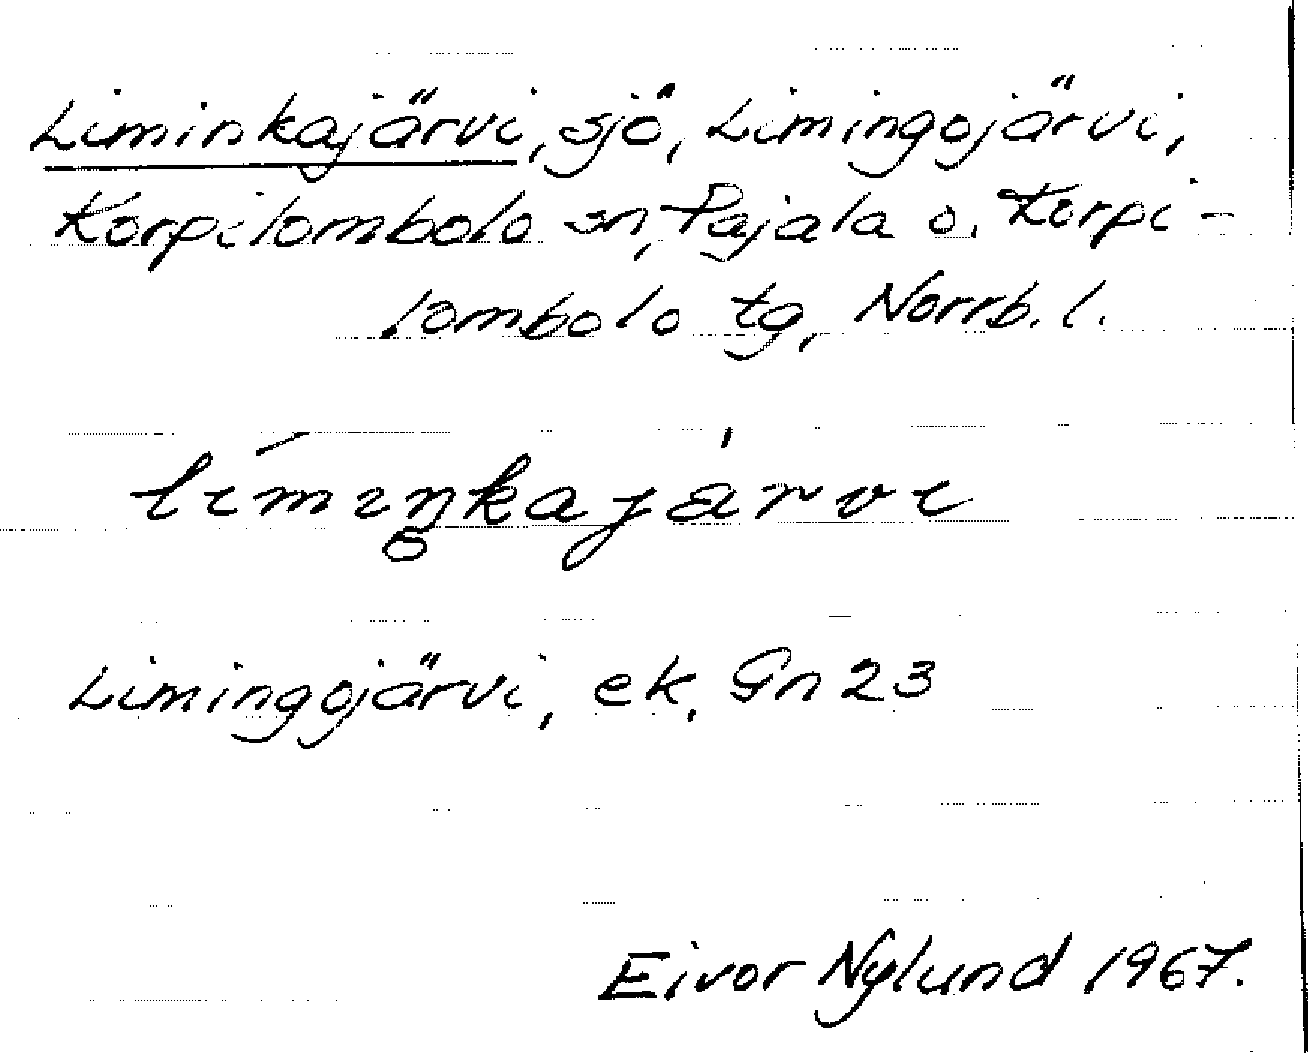 Liminkajärvi, sjö, Limingojärvi,
Korpilombolo sn, Pajala o. Korpi-
lombolo tg, Norrb. l.
límiŋkajàrvi
Limingojärvi, ek. Gn 23
Eivor Nylund 1967.